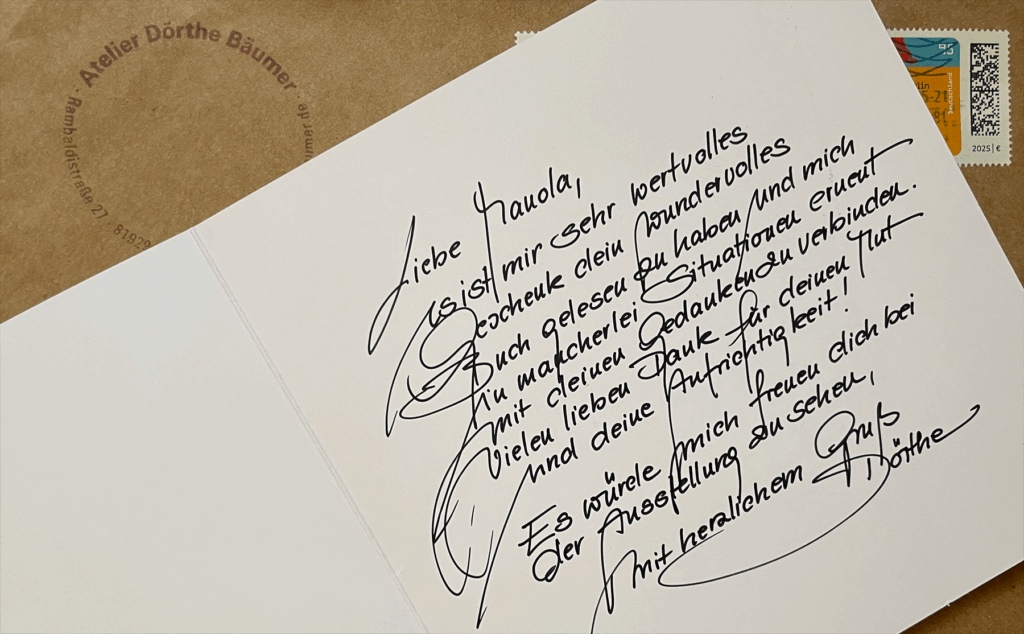 Atelier Dörthe Bäumer
Rambaldistraße 27 · 81929
95
Deutschland
2025 | €
Liebe Manola,
es ist mir sehr wertvolles
Geschenk dein wundervolles
Buch gelesen zu haben und mich
in mancherlei Situationen erneut
mit deinen Gedanken zu verbinden.
Vielen lieben Dank für deinen Mut
und deine Aufrichtigkeit!
Es würde mich freuen dich bei
der Ausstellung zu sehen,
mit herzlichem Gruß
Dörthe